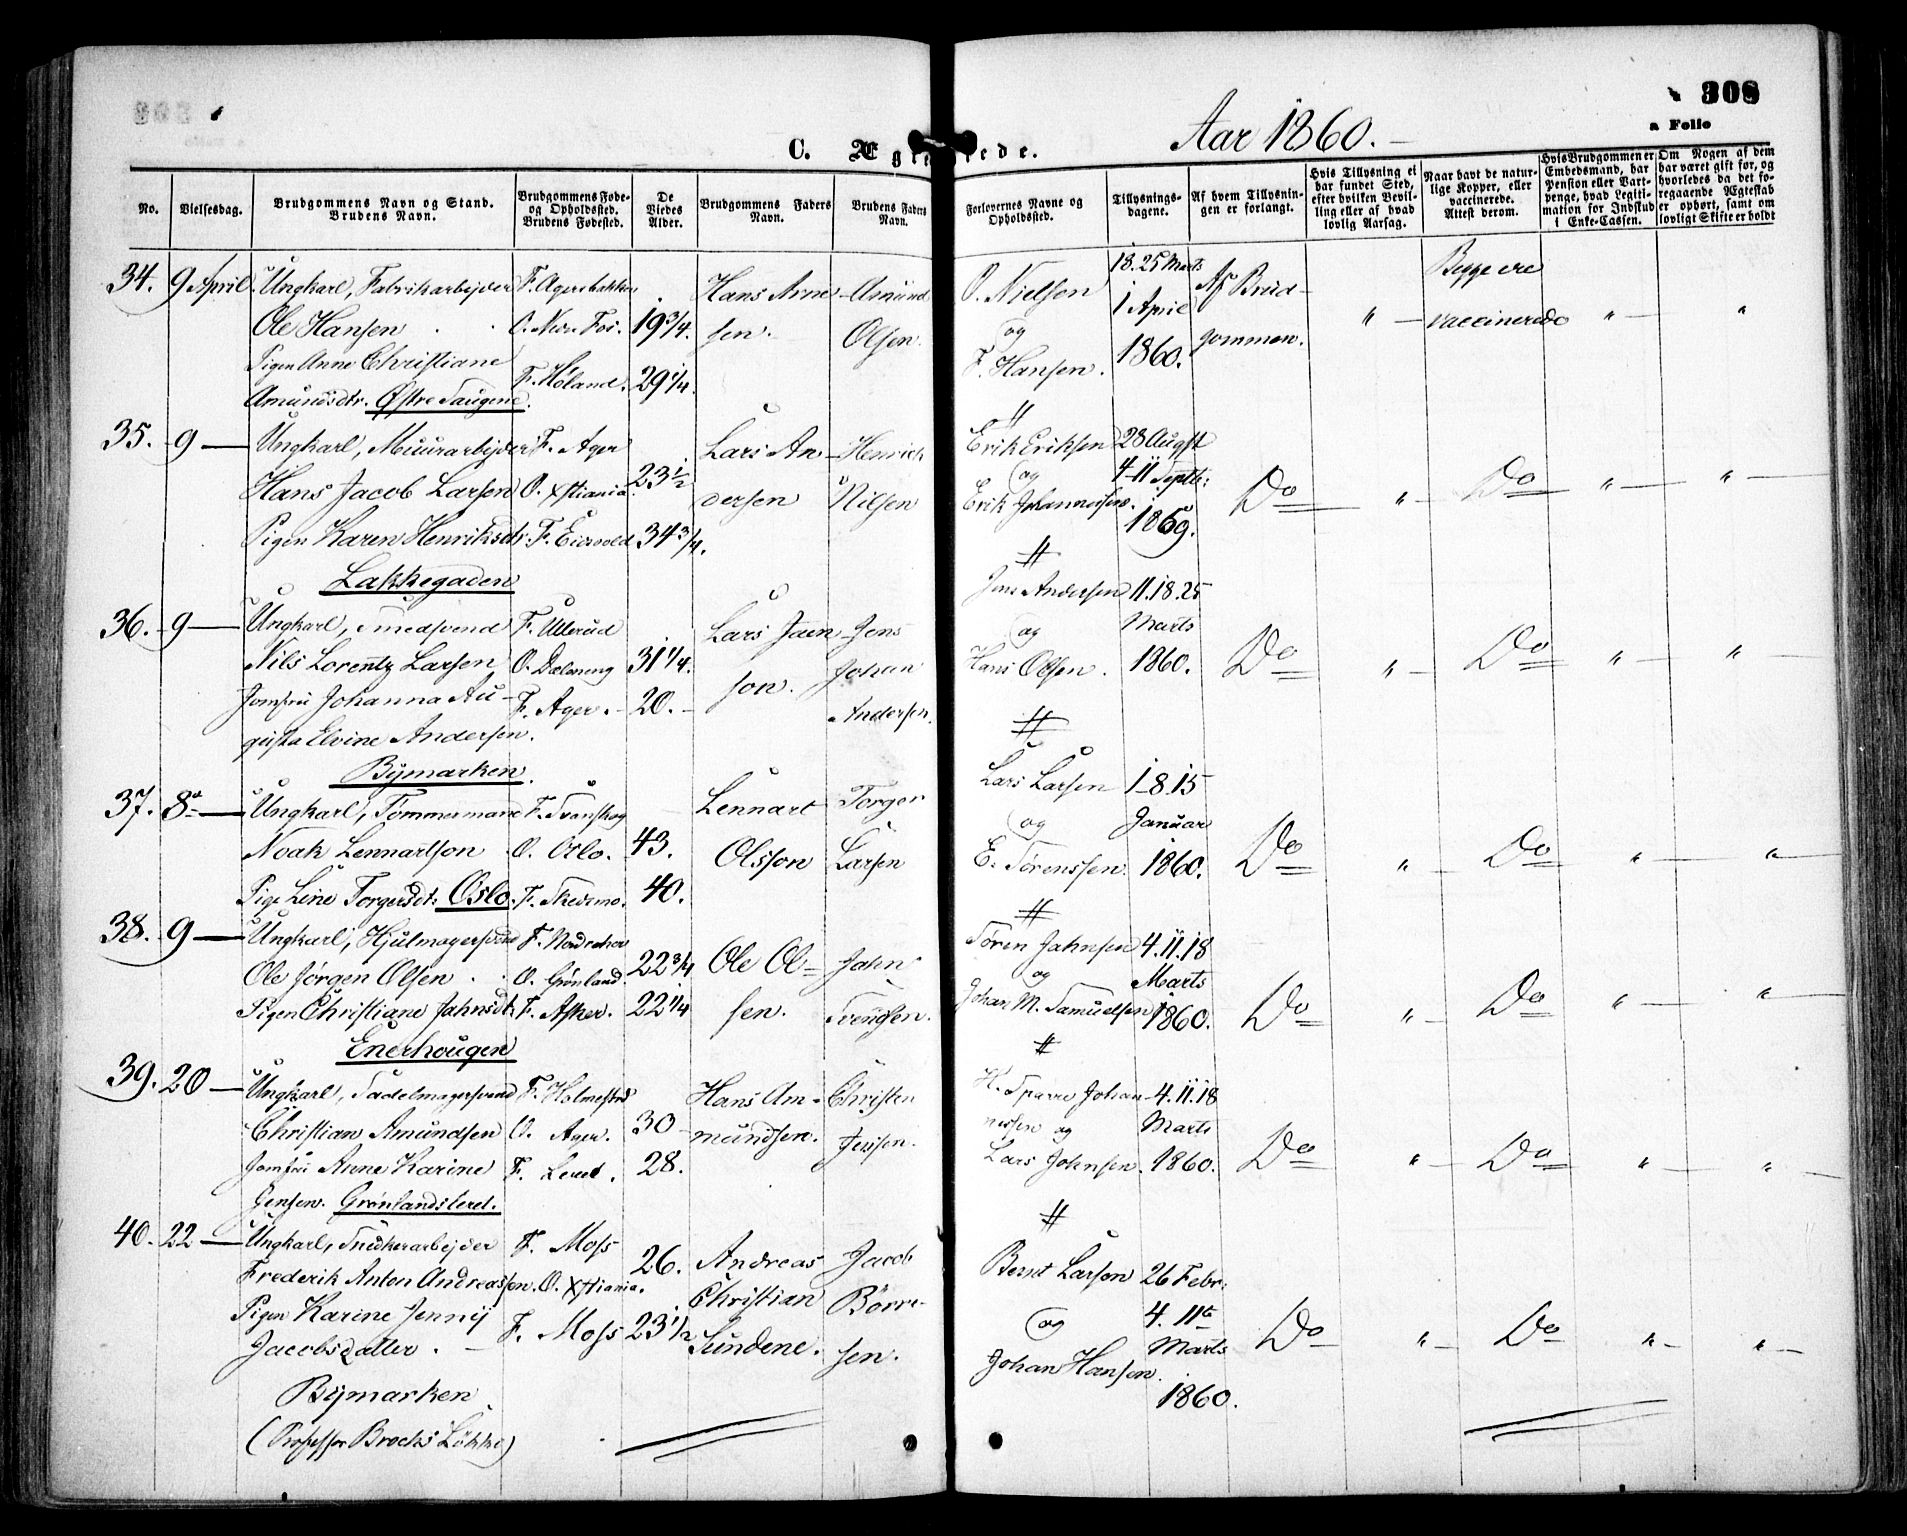 308
a Folio
Aar 1860.
C. Ægteviede.
No.
Vielsesdag.
Brudgommens Navn og Stand.
Brudens Navn.
Brudgommens Føde-
og Opholdssted.
Brudens Fødested.
De
Viedes
Alder.
Brudgommens Faders
Navn.
Brudens Faders
Navn.
Forlovernes Navne og
Opholdssted.
Tillysnings-
dagene.
Af hvem Tillysnin-
gen er forlangt.
Hvis Tillysning ei
har fundet Sted,
efter hvilken Bevil-
ling eller af hvad
lovlig Aarsag.
Naar havt de natur-
lige Kopper, eller
vaccinerede.
Attest derom.
Hvis Brudgommen er
Embedsmand, har
Pension eller Vart-
penge, hvad Legiti-
mation for Indskud
i Enke-Cassen.
Om Nogen af dem
har været gift før, og
hvorledes da det fo-
regaaende Ægteskab
er ophørt, samt om
lovligt Skifte er holdt
34. 9 April. Ungkarl, Fabrikarbejder F. Agersbakken Hans Arne- Amund O. Nielsen 18. 25 Marts Af Brud- " Begge ere " "
Ole Hansen O. Nere Fos. 19 3/4. sen. Olsen. og 1 April gommen. vaccinerede
Pigen Anne Christiane F. Høland. 29 1/4. F. Hansen. 1860.
Amundsdtr. Østre Saugene.
35. 9 — Ungkarl, Muurarbejder F. Ager Lars An- Henrick Erik Eriksen 28 Augst
Hans Jacob Larsen O. Xstiania. 23 1/2 dersen Nilsen og 4-11 Septb: Do " Do " "
Pigen Karen Henriksdt: F. Eidsvold 34 3/4. Erik Johannessen. 1859.
Lakkegaden
36. 9 — Ungkarl, Smedsvend F. Ullerud Lars Jaen- Jens Jens Andersen 11. 18. 25
Nils Lorentz Larsen, O. Dæleneng 31 1/4. son. Johan og Marts Do " Do " "
Jomfru Johanna Au- F. Ager. 20. Andersen. Hans Olsen. 1860.
gusta Elvine Andersen.
Bymarken.
37. 8de — Ungkarl, Tømmermand F. Svanskog Lennart Torger Lars Larsen 1-8. 15
Noak Lennartson O. Oslo. 43. Olsson Larsen og Januar Do " Do " "
Pige Line Torgersdt. Oslo. F. Skedsmo. 40. E. Sørenssen. 1860.
38. 9 — Ungkarl, Hjulmagersvend F. Nordrehov Ole Ol- Jahn Søren Jahnsen 4. 11. 18
Ole Jørgen Olsen O. Grønland. 22 3/4 sen. Svendsen. og Marts Do " Do " "
Pigen Christiane Jahnsdt. F. Asker. 22 1/4 Johan M. Samuelsen 1860.
Enerhougen
39. 20 — Ungkarl, Sadelmagersvend F. Holmestrd Hans Am- Christen H. Sparre Johan- 4. 11. 18
Christian Amundsen O. Ager. 30 mundsen. Jenssen. nessen og Marts Do " Do " "
Jomfru Anne Karine F. Leret. 28. Lars Johnsen. 1860.
Jensen. Grønlandsleret.
40. 22 — Ungkarl, Snedkerarbejder F. Moss 26. Andreas Jacob Bernt Larson 26 Febr:
Frederik Anton Andreassen. O. Xstiania. Christian Børre- og 4. 11te Do " Do " "
Pigen Karine Jenny F. Moss 23 1/2 Sundene. sen. Johan Hansen. Marts
Jacobsdatter. 1860.
Bymarken
(Professor Brochs Løkke)